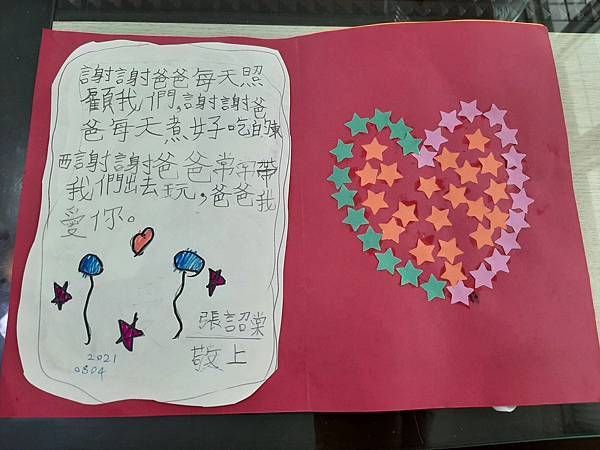 謝謝爸爸每天照
顧我們,謝謝爸
爸每天煮好吃的東
西謝謝爸爸常常帶
我們出去玩,爸爸我
愛你。
張詔棠
敬上
2021
0804